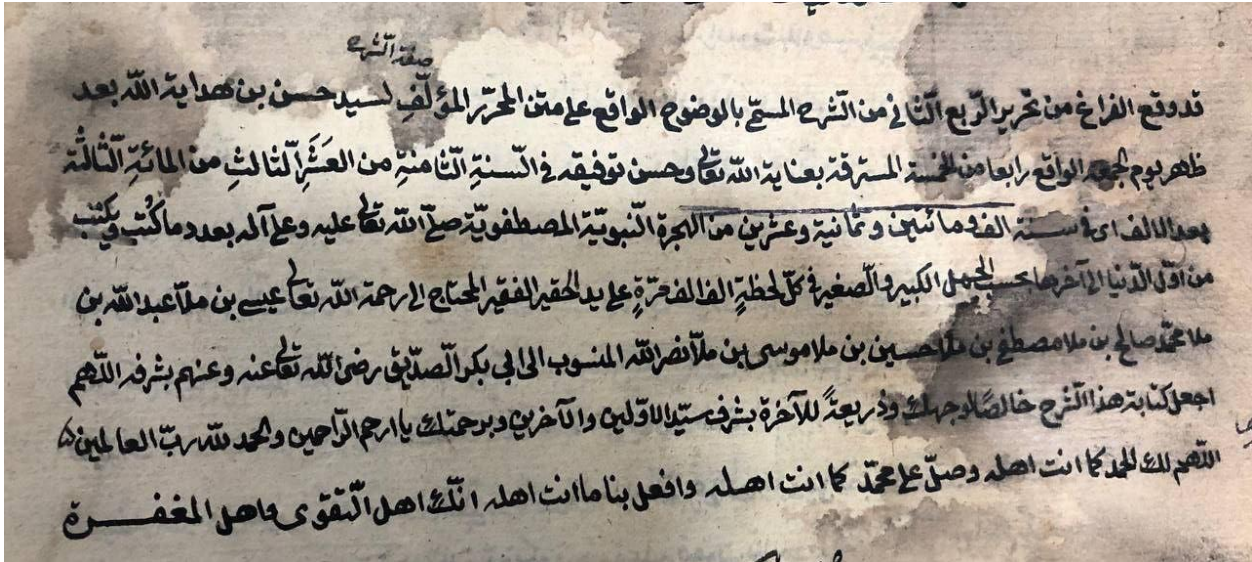 صفة الشرح
قد وقع الفراغ من تحرير الرّبع الثّاني من الشّرح المسمّى بالوضوح الواقع على متن المحرّر المؤلّفِ لسيد حسن بن هداية اللّه بعد
ظهر يوم الجمعة الواقع رابعا من الخمسة المسترقة بعناية اللّه تعالى وحسن توفيقه في السّنةِ الثّامنةِ من العَشَرِ الثالثِ من المائةِ الثّالثة
بعد الالف اى في سنة الف ومائتين وثمانية وعشرين من الهجرة النّبويّة المصطفويّة صلّى اللّه تعالى عليه وعلى آله بعدد ما كُتب ويكتب
من اوّل الدّنيا الى آخرها بحسب الجمل الكبير والصّغير في كلّ لحظةٍ الف الف مرّةٍ على يد الحقير الفقير المحتاج الى رحمة اللّه تعالى عيسى بن ملّا عبد اللّه بن
ملا محمّد صالح بن ملا مصطفى بن ملا حسين بن ملا موسى بن ملّا نصر اللّه المنسوب الى ابي بكر الصّدّيق رضى اللّه تعالى عنه وعنهم بشرفه اللّهم
اجعل كتابة هذا الشرح خالصًا لوجهك وذريعةً للآخرة بشرف سيّد الاوّلين والآخرين وبرحمتك يا ارحم الرّاحمين والحمد للّه ربّ العالمين
اللّهم لك الحمد كما انت اهله وصلّ على محمّد كما انت اهله وافعل بنا ما انت اهله انّك اهل التّقوى واهل المغفرة